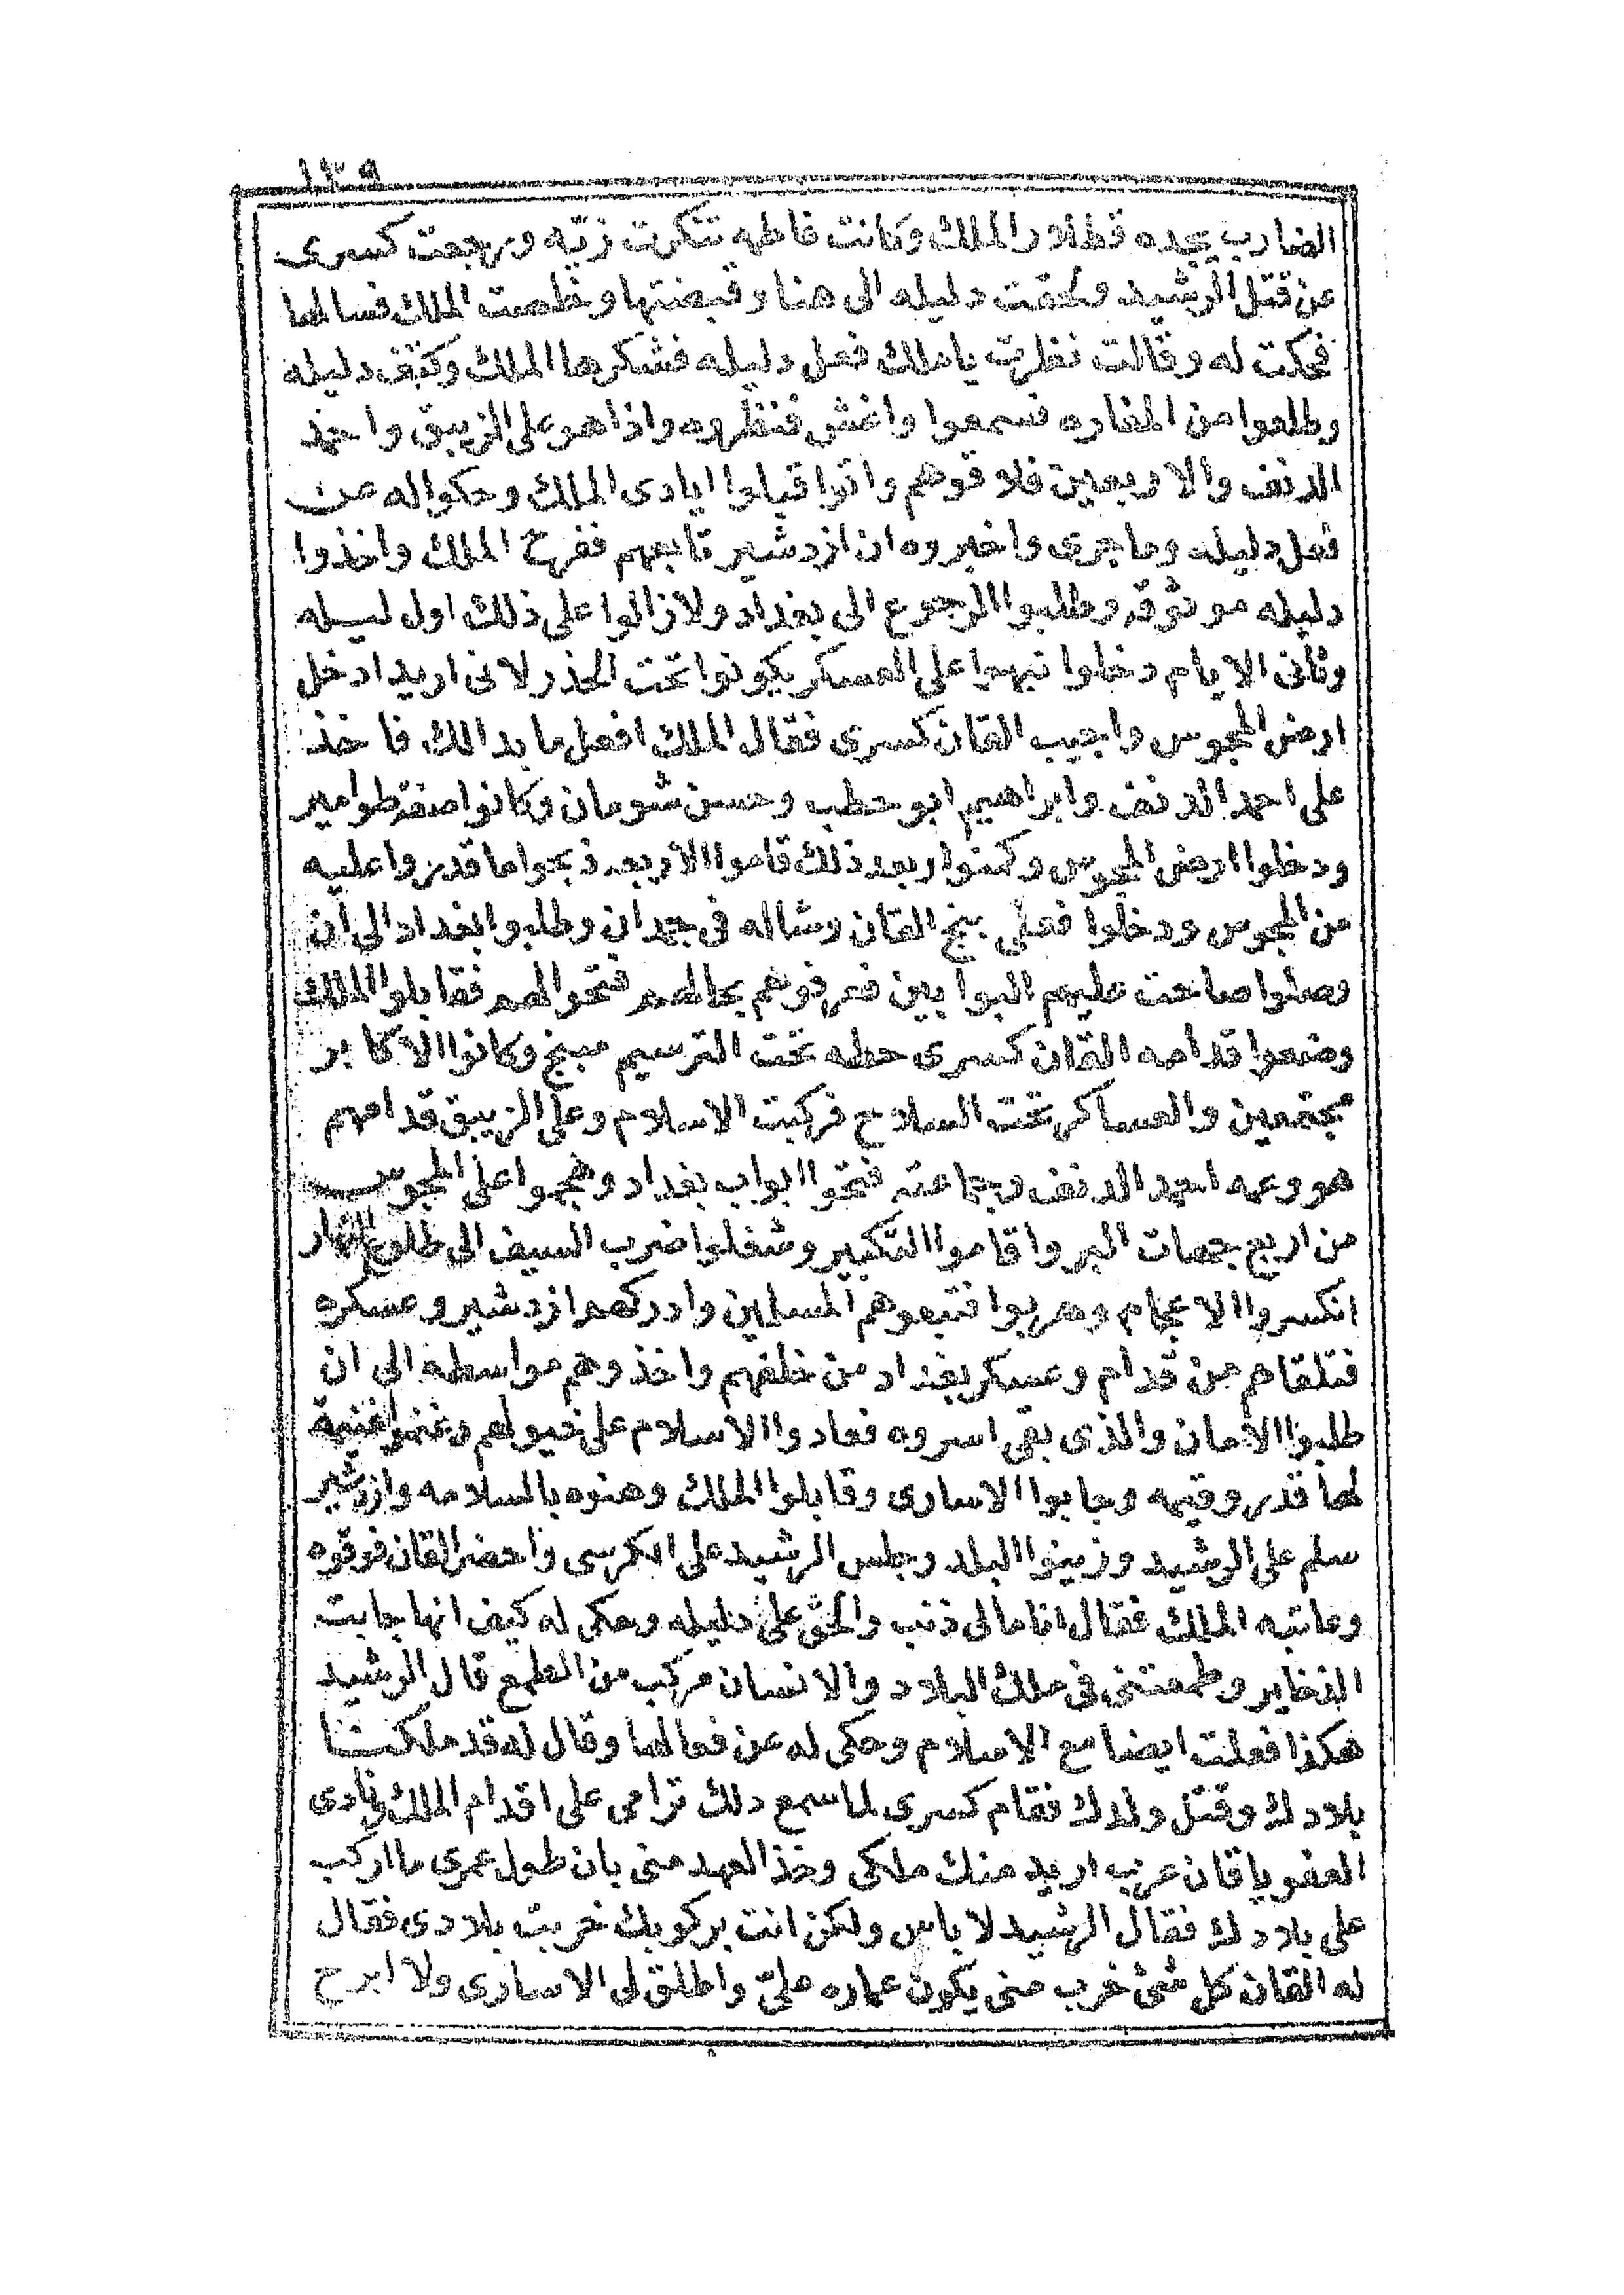 ١٣٩
الضارب يجده قطلار الملك وكانت فاطمه تنكرت زيّه ورجعت كسرى
عن قتل الرشيد ولحقت دليله الى هنا وقبضتها وخلصت الملك فسالها
فحكت له وقالت نظرت يا ملك فعل دليله فشكرها الملك وكتف دليله
وطلعوا من المغاره فسمعوا واغش فنظروه واذا هو على الزيبق واحمد
الدنف والاربعين فلاقوهم واتوا قبلوا ايادى الملك وحكوا له عن
فعل دليله وما جرى واخبروه ان ازدشير تابعهم ففرح الملك واخذوا
دليله موثوقه وطلبوا الرجوع الى بغداد ولا زالوا على ذلك اول ليله
وثانى الايام دخلوا نبهوا على العسكر يكونوا تحت الحذر لانى اريد ادخل
ارض المجوس واجيب القان كسرى فقال الملك افعل ما بدا لك فاخذ
على احمد الدنف وابراهيم ابو حطب وحسن شومان وكانوا صفة طوامير
ودخلوا ارض المجوس وكمنوا وبعد ذلك قاموا الاربعه ذبحوا ما قدروا عليه
من المجوس ودخلوا فعلى بنج القان وشاله فى جمدان وطلبوا بغداد الى ان
وصلوا صاحت عليهم البوابين فعرفوهم بحالهم فتحوا لهم فقابلوا الملك
وضعوا قدامه القان كسرى حطه تحت الترسيم مبنج وكانوا الاكابر
مجتمعين والعساكر تحت السلاح فركبت الاسلام وعلى الزيبق قدامهم
هو وعمه احمد الدنف وجماعته فتحوا ابواب بغداد وهجموا على المجوس
من اربع جهات البر واقاموا التكبير وشغلوا ضرب السيف الى طلوع النهار
انكسروا الاعجام وهربوا فتبعوهم المسلمين وادركهم ازدشير وعسكره
فتلقاهم من قدام وعسكر بغداد من خلفهم واخذوهم مواسطه الى ان
طلبوا الامان والذى بقى اسروه فعادوا الاسلام على خيولهم وغنموا غنيمة
لها قدر وقيمه وجابوا الاسارى وقابلوا الملك وهنوه بالسلامه وازدشير
سلم على الرشيد وزينوا البلد وجلس الرشيد على الكرسى واحضر القان فوقوه
وعاتبه الملك فقال انا مالى ذنب والحق على دليله وحكى له كيف انها جابت
الذخاير وطمعتنى فى ملك البلاد والانسان مركب من الطمع قال الرشيد
هكذا فعلت ايضا مع الاسلام وحكى له عن فعالها وقال له قد ملكنا
بلادك وقتل ولدك فقام كسرى لما سمع دلك ترامى على اقدام الملك ونادى
العفو يا قان عرب اريد منك ملكى وخذ العهد منى بان طول عمرى ما اركب
على بلادك فقال الرشيد لا باس ولكن انت بركوبك خربت بلادى فقال
له القان كل شئ خرب منى يكون عماره علىّ واطلق لى الاسارى ولا ابرح